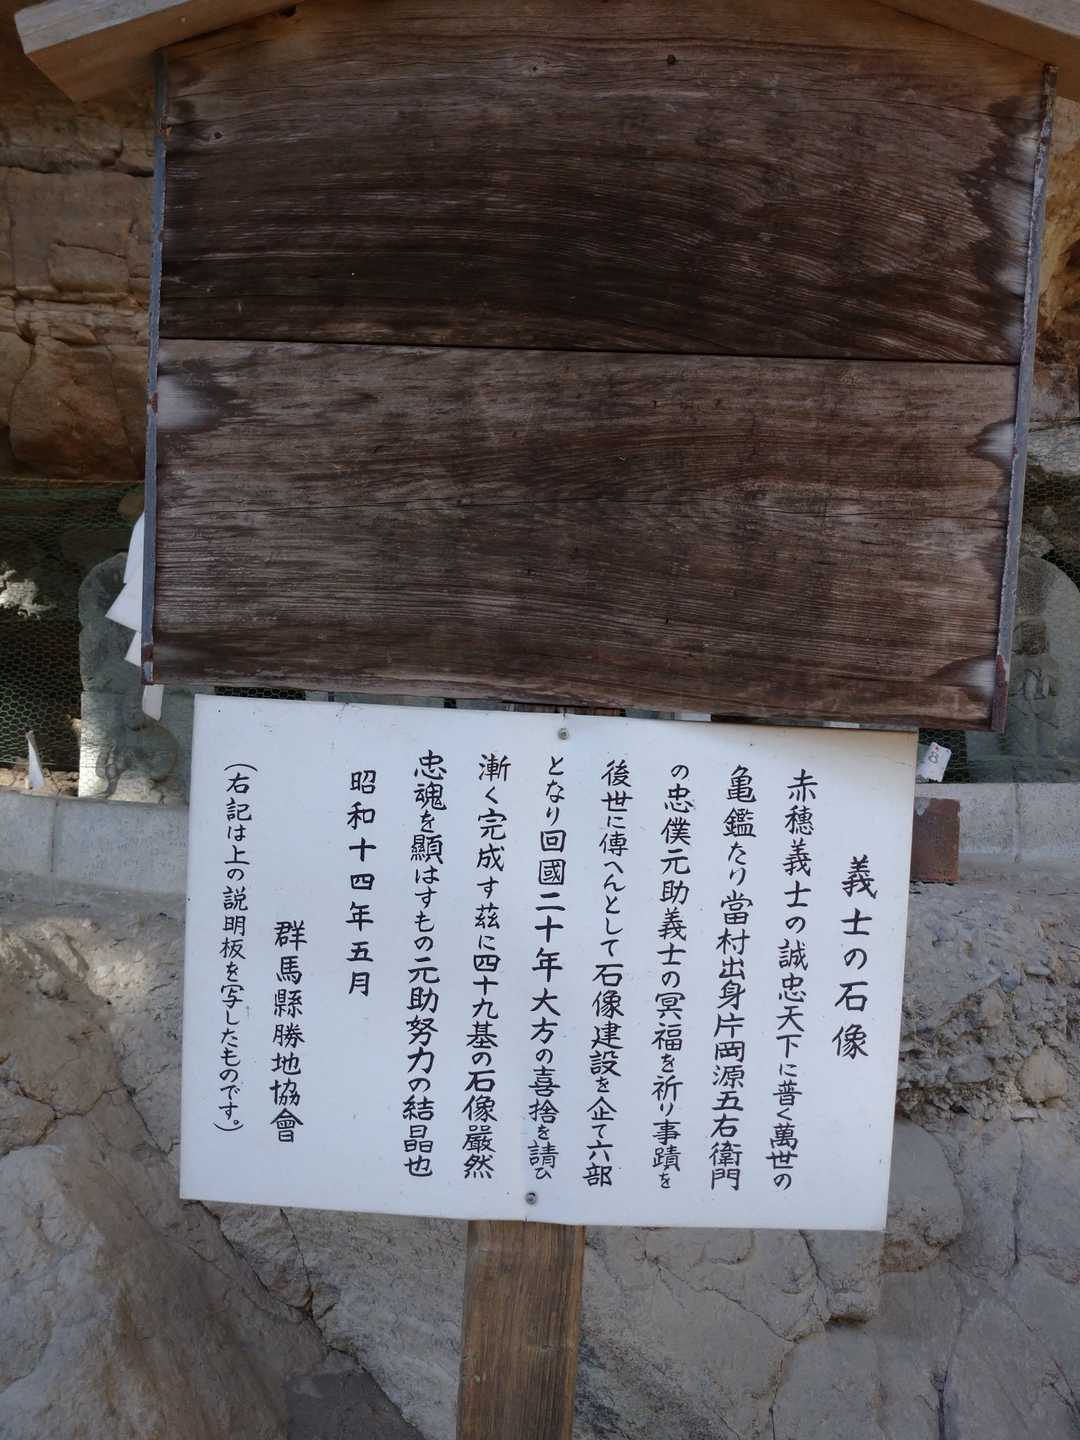 義士の石像
赤穗義士の誠忠天下に普く萬世の
亀鑑たり當村出身片岡源五右衛門
の忠僕元助義士の冥福を祈り事蹟を
後世に傳へんとして石像建設を企て六部
となり回國二十年大方の喜捨を請ひ
漸く完成す茲に四十九基の石像嚴然
忠魂を顯はすもの元助努力の結晶也
昭和十四年五月
群馬縣勝地協會
（右記は上の説明板を写したものです。）